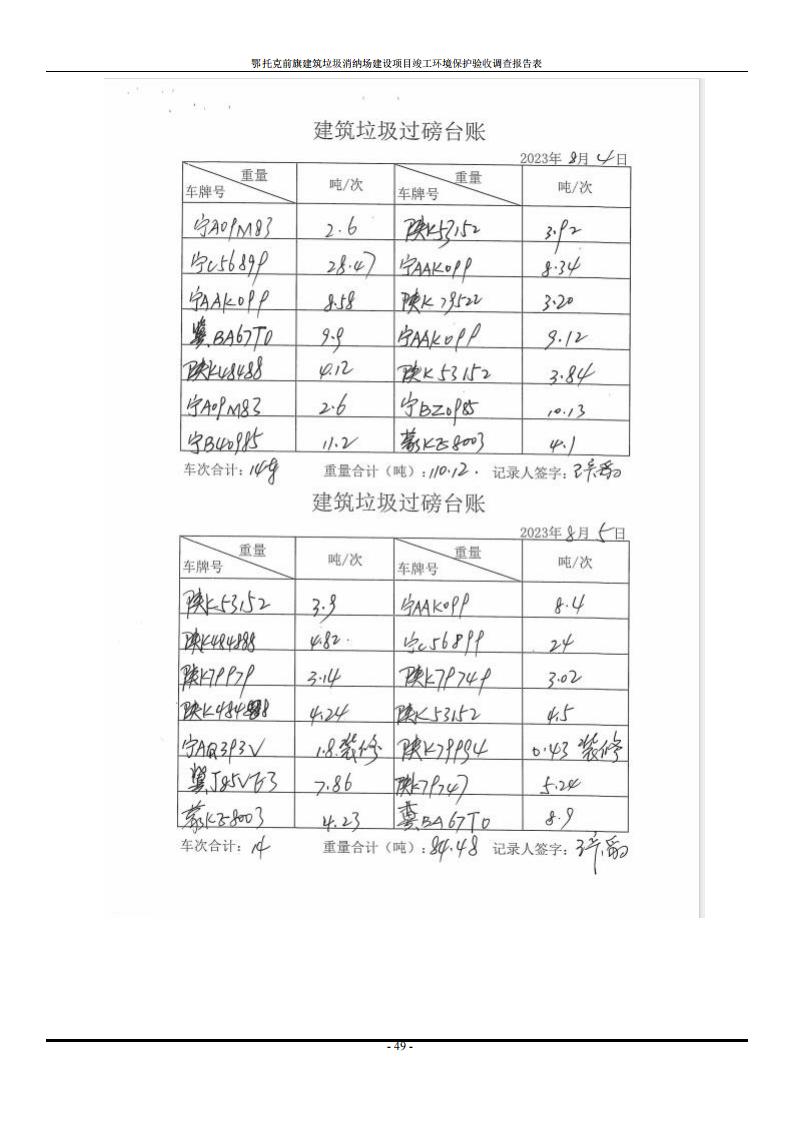 鄂托克前旗建筑垃圾消纳场建设项目竣工环境保护验收调查报告表
建筑垃圾过磅台账
2023年 8月 4日
重量 车牌号 吨/次 重量 车牌号 吨/次
宁A09M83 2.6 陕K53152 3.92
宁C56899 28.47 宁AAK099 8.34
宁AAK099 8.58 陕K79522 3.20
冀BA67T0 9.9 宁AAK099 9.12
陕K48488 4.12 陕K53152 3.84
宁A09M83 2.6 宁BZ0985 10.13
宁B40985 11.2 蒙KE8003 4.1
车次合计: 14 重量合计（吨）: 110.12. 记录人签字:
建筑垃圾过磅台账
2023年 8月 5日
重量 车牌号 吨/次 重量 车牌号 吨/次
陕K53152 3.9 宁AAK099 8.4
陕K484888 4.82 宁C56899 24
陕K79979 3.14 陕K79749 3.02
4.24 陕K53152 4.5
宁AQ393V 1.8.装修 陕K79994 0.43 装修
7.86 陕K79747 5.24
蒙KE8003 4.23 冀BA67T0 8.9
车次合计: 14 重量合计（吨）: 84.48 记录人签字:
- 49 -